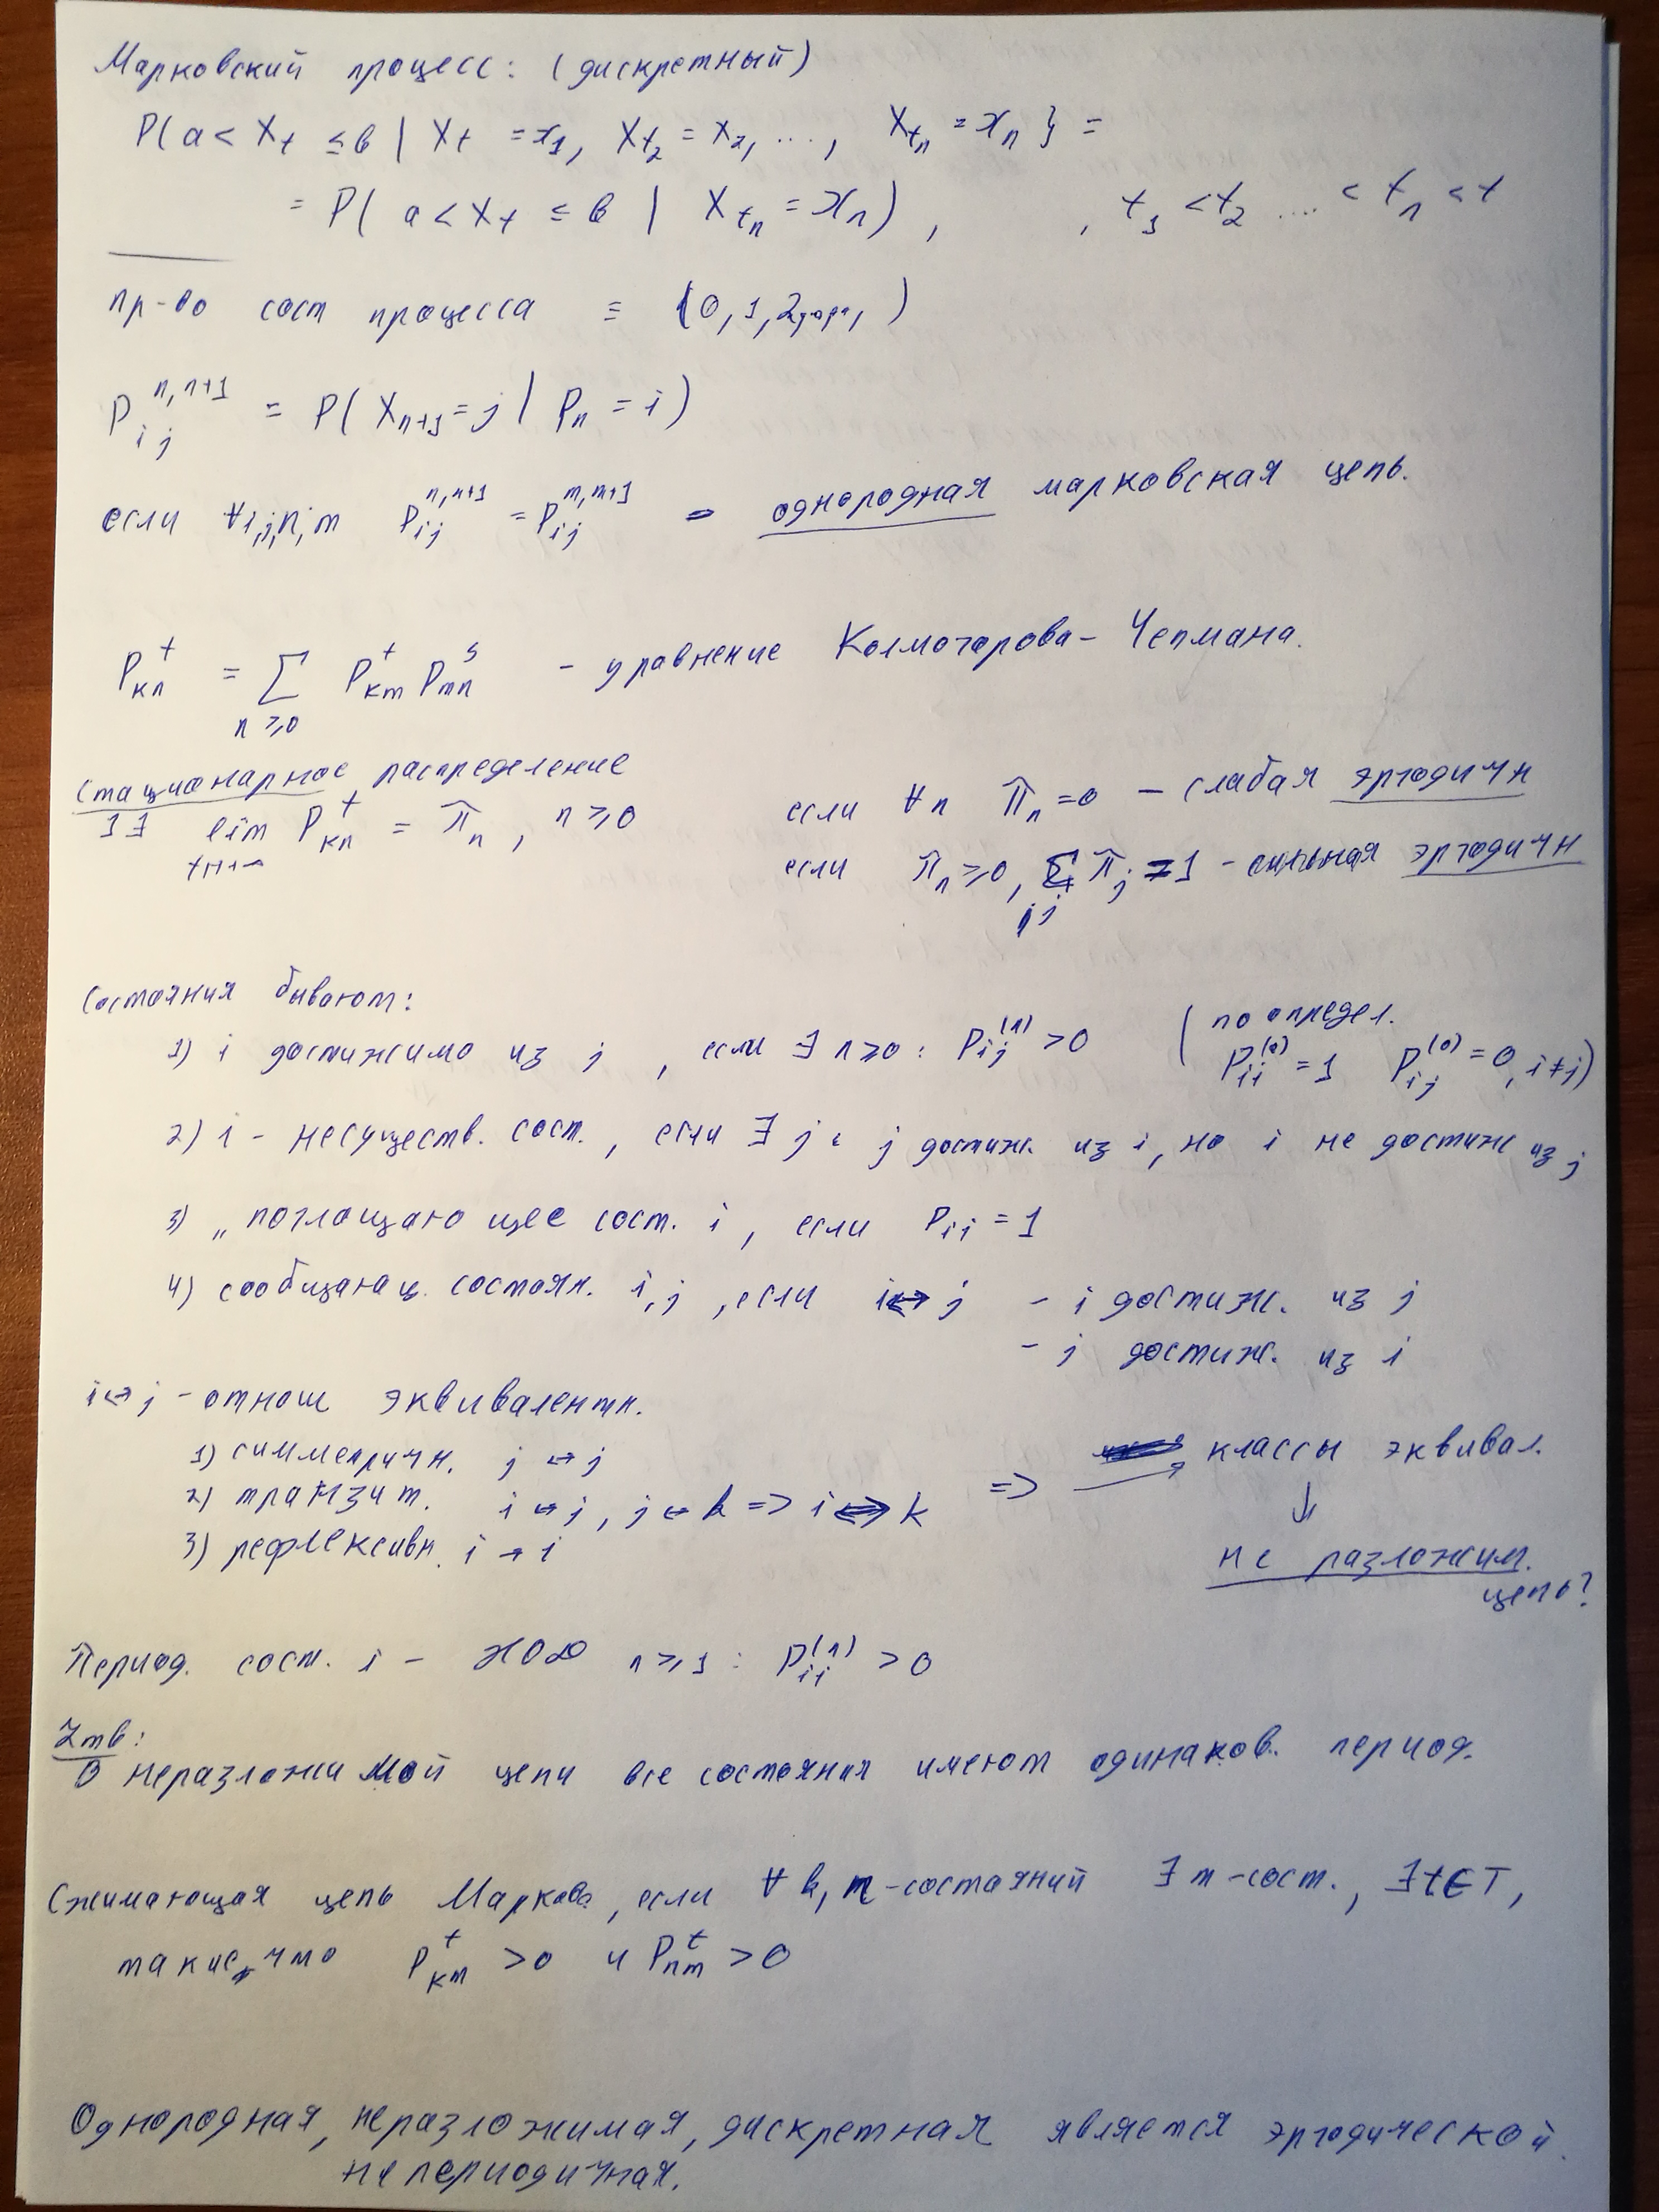 Марковский процесс: (дискретный)
P( a < X_t ≤ b | X_t = x_1, X_{t_2} = x_2, ..., X_{t_n} = x_n } =
= P( a < X_t ≤ b | X_{t_n} = x_n ) , , t_1 < t_2 .... < t_n < t
пр-во сост процесса ≡ (0, 1, 2, ..., )
P_{ij}^{n,n+1} = P( X_{n+1} = j | P_n = i )
если ∀i,j,n,m P_{ij}^{n,n+1} = P_{ij}^{m,m+1} - однородная марковская цепь.
P_{кn}^t = Σ_{n ≥ 0} P_{кm}^t P_{mn}^s - уравнение Колмогорова - Чепмана.
Стационарное распределение
∃ lim P_{кn}^t = π_n , n ≥ 0
если ∀n π_n = 0 - слабая эргодичн
если π_n ≥ 0, Σ_j π_j = 1 - сильная эргодичн
Состояния бывают:
1) i достижимо из j , если ∃ n ≥ 0 : P_{ij}^{(n)} > 0 ( по определ.
P_{ii}^{(0)} = 1 P_{ij}^{(0)} = 0, i ≠ j)
2) i - несуществ. сост. , если ∃ j : j достиж. из i, но i не достиж из j
3) „ поглощающее сост. i , если P_{ii} = 1
4) сообщающ. состоян. i, j , если i ↔ j - i достиж. из j
- j достиж. из i
i ↔ j - отнош эквивалентн.
1) симметричн. j ↔ j
2) транзит. i ↔ j , j ↔ k => i ⟷ k
3) рефлексивн. i → i
=> → классы эквивал.
↓
не разложим.
цепь?
Период. сост. i - НОД n ≥ 1 : P_{ii}^{(n)} > 0
Утв:
В неразложимой цепи все состояния имеют одинаков. период.
Сжимающая цепь Маркова, если ∀ k, n - состояний ∃ m - сост., ∃ t ∈ T,
такие, что P_{кm}^t > 0 и P_{nm}^t > 0
Однородная, неразложимая, дискретная является эргодической.
непериодичная.